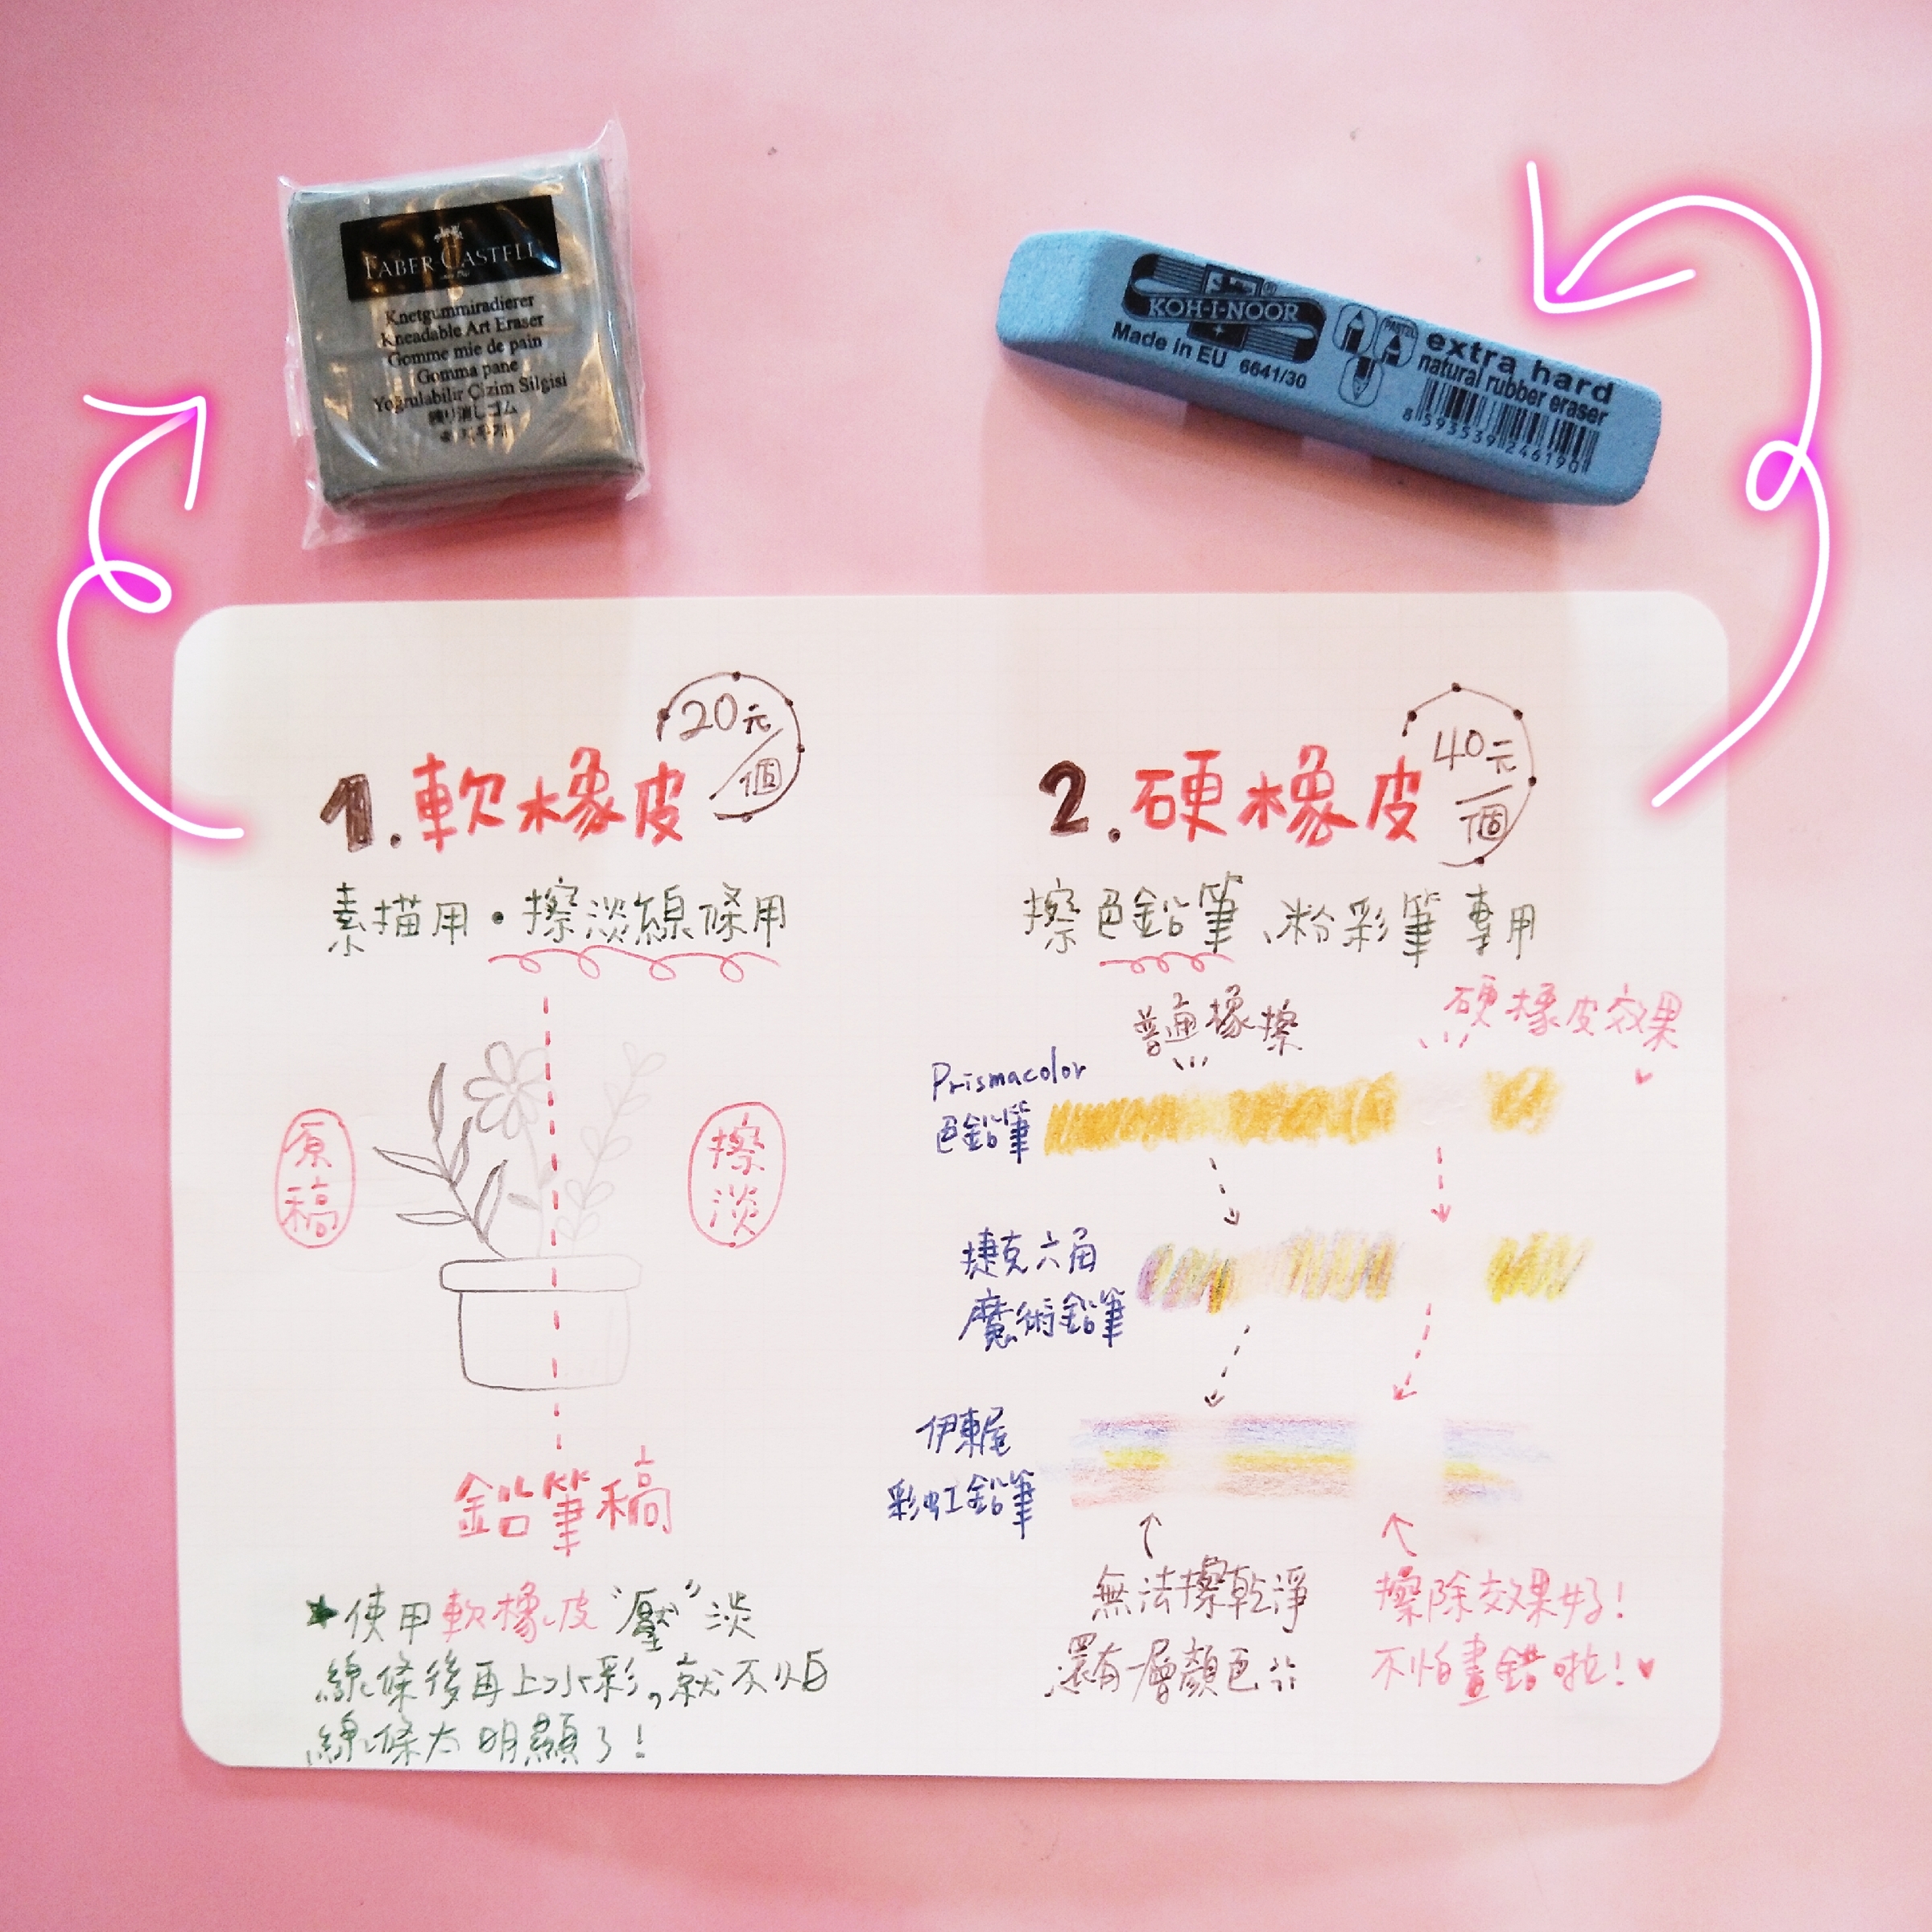 FABER-CASTELL
Knetgummiradierer
Kneadable Art Eraser
Gomme mie de pain
Gomma pane
Yoğrulabilir Çizim Silgisi
練り消しゴム
KOH-I-NOOR
Made in EU 6641/30
PASTEL
extra hard
natural rubber eraser
8 593539 246190
1. 軟橡皮
20元/個
素描用·擦淡線條用
原稿
擦淡
鉛筆稿
使用軟橡皮"壓"淡
線條後再上水彩,就不怕
線條太明顯了!
2. 硬橡皮
40元/個
擦色鉛筆、粉彩筆專用
普通橡擦
硬橡皮效果
Prismacolor
色鉛筆
捷克六角
魔術鉛筆
伊東屋
彩虹鉛筆
無法擦乾淨
還有一層顏色
擦除效果好!
不怕畫錯啦!